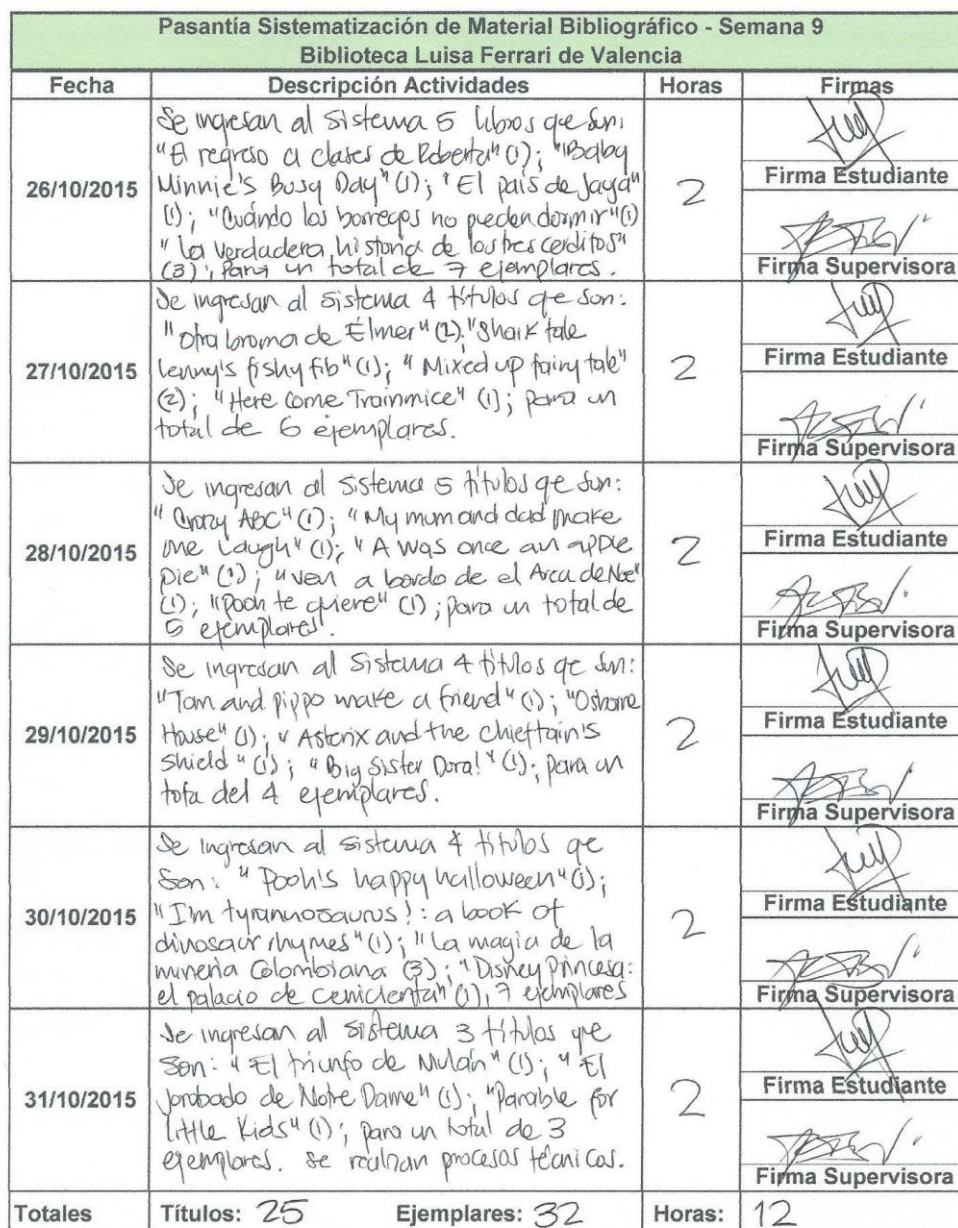 Pasantía Sistematización de Material Bibliográfico - Semana 9
Biblioteca Luisa Ferrari de Valencia
Fecha Descripción Actividades Horas Firmas
26/10/2015
Se ingresan al sistema 5 libros que son:
"El regreso a clases de Roberta" (1); "Baby
Minnie's Busy Day" (1); "El país de Jaya"
(1); "Cuándo los borregos no pueden dormir" (1)
"La verdadera historia de los tres cerditos"
(3); Para un total de 7 ejemplares.
2
Firma Estudiante
Firma Supervisora
27/10/2015
Se ingresan al sistema 4 títulos qe son:
"Otra broma de Élmer" (2). "Shark tale
Lenny's fishy fib" (1); "Mixed up fairy tale"
(2); "Here Come Trainmice" (1); para un
total de 6 ejemplares.
2
Firma Estudiante
Firma Supervisora
28/10/2015
Se ingresan al sistema 5 títulos qe son:
"Crazy ABC" (1); "My mum and dad make
me laugh" (1); "A was once an apple
pie" (1); "Ven a bordo de el Arca de Noe"
(1); "Pooh te quiere" (1); para un total de
5 ejemplares.
2
Firma Estudiante
Firma Supervisora
29/10/2015
Se ingresan al sistema 4 títulos qe son:
"Tom and pippo make a friend" (1); "Osborne
House" (1); "Asterix and the chieftain's
shield" (1); "Big Sister Dora!" (1); para un
tota del 4 ejemplares.
2
Firma Estudiante
Firma Supervisora
30/10/2015
Se ingresan al sistema 4 títulos qe
son: "Pooh's happy halloween" (1);
"I'm tyrannosaurus!: a book of
dinosaur rhymes" (1); "La magia de la
minería Colombiana (3); "Disney Princesa:
el palacio de cenicienta" (1), 7 ejemplares
2
Firma Estudiante
Firma Supervisora
31/10/2015
Se ingresan al sistema 3 títulos que
son: "El triunfo de Mulán" (1); "El
jorobado de Notre Dame" (1); "Parable for
little Kids" (1); para un total de 3
ejemplares. se realizan procesos técnicos.
2
Firma Estudiante
Firma Supervisora
Totales Títulos: 25 Ejemplares: 32 Horas: 12